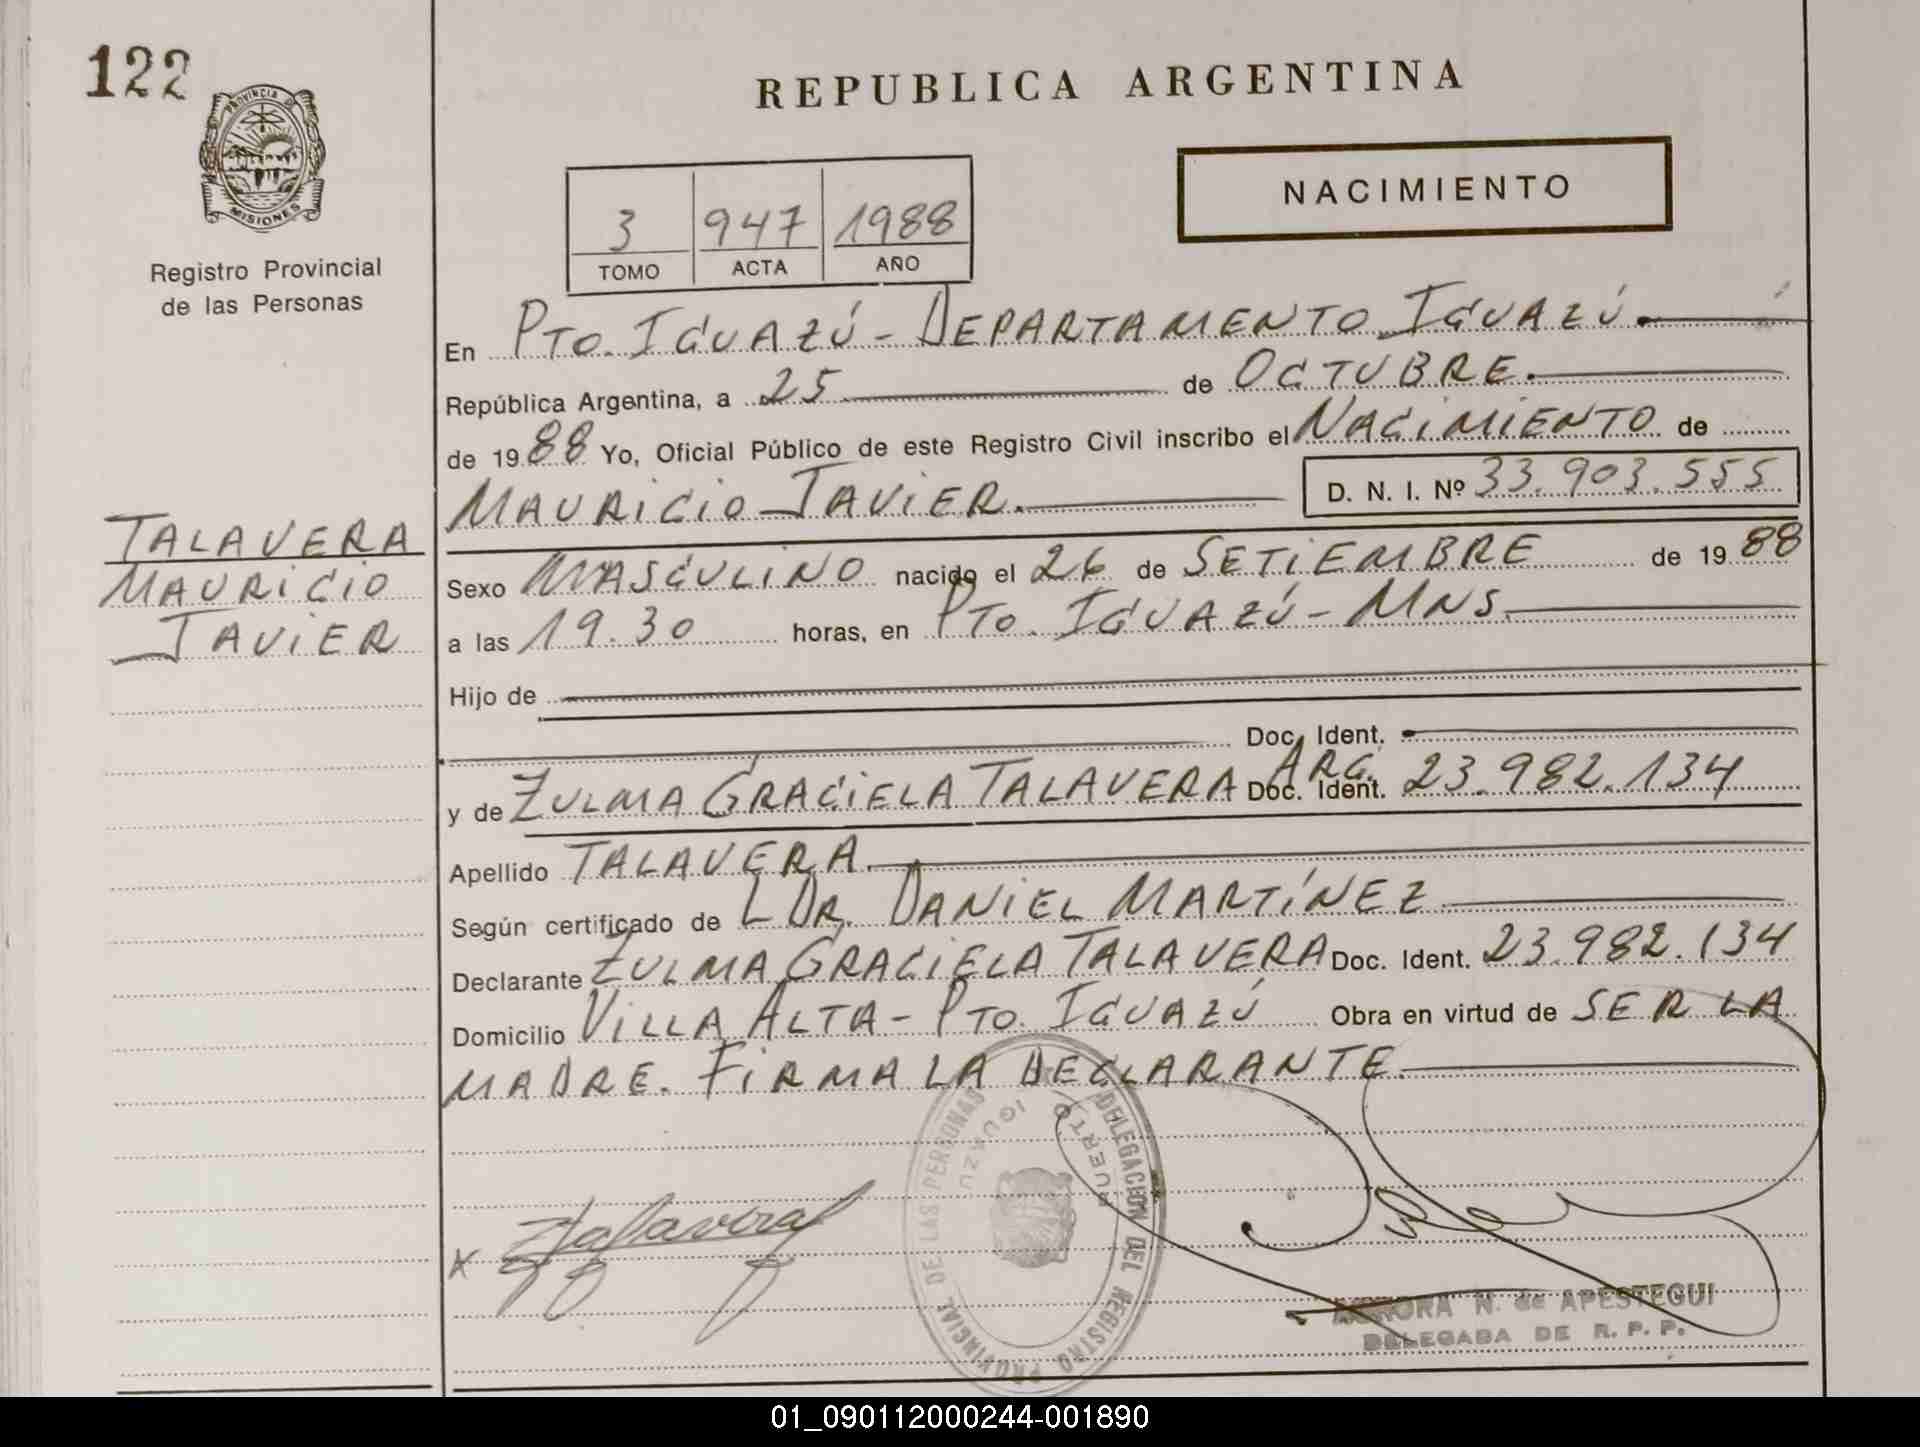 122
PROVINCIA DE
MISIONES
Registro Provincial
de las Personas
REPUBLICA ARGENTINA
NACIMIENTO
3 947 1988
TOMO ACTA AÑO
En PTO. IGUAZÚ - DEPARTAMENTO IGUAZÚ.
República Argentina, a 25 de OCTUBRE.
de 1988 Yo, Oficial Público de este Registro Civil inscribo el NACIMIENTO de
MAURICIO JAVIER. D. N. I. Nº 33.903.555
TALAVERA
MAURICIO
JAVIER
Sexo MASCULINO nacido el 26 de SETIEMBRE de 1988
a las 19.30 horas, en PTO. IGUAZÚ - MNS.
Hijo de
Doc. Ident.
y de ZULMA GRACIELA TALAVERA Doc. Ident. ARG. 23.982.134
Apellido TALAVERA.
Según certificado de L DR. DANIEL MARTÍNEZ
Declarante ZULMA GRACIELA TALAVERA Doc. Ident. 23.982.134
Domicilio VILLA ALTA - PTO. IGUAZÚ Obra en virtud de SER LA
MADRE. FIRMA LA DECLARANTE.
DELEGACION DEL REGISTRO PROVINCIAL DE LAS PERSONAS
PUERTO IGUAZU
X
N. de APESTEGUI
DELEGADA DE R. P. P.
01_090112000244-001890